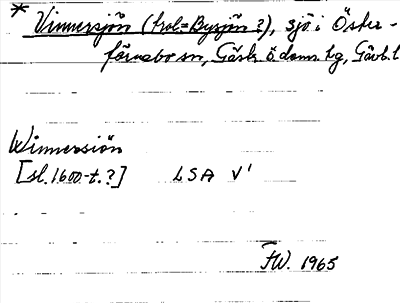 * Vinnersjön (trol=Bysjön?), sjö i Öster-
färnebo sn, Gästr. ö. doms. hg, Gävl. l
Winnersiön
[sl. 1600-t.?] LSA V¹
FW. 1965